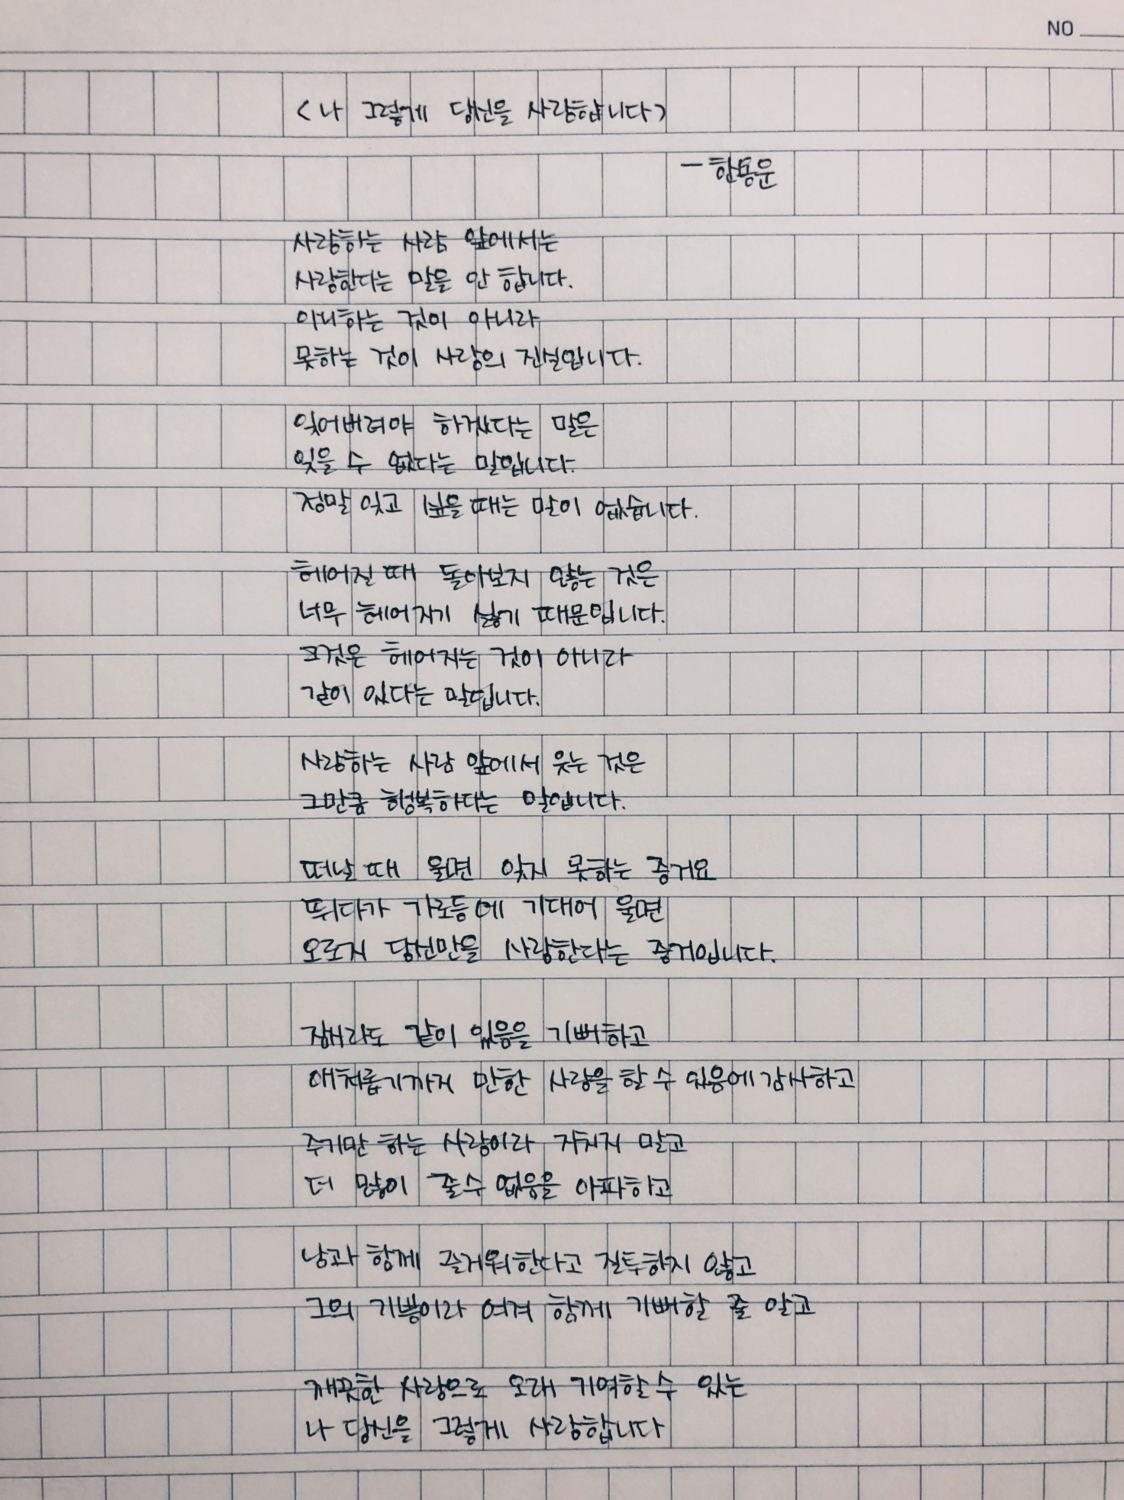 NO
<나 그렇게 당신을 사랑합니다>
- 한용운
사랑하는 사람 앞에서는
사랑한다는 말을 안 합니다.
아니하는 것이 아니라
못하는 것이 사랑의 진실입니다.
잊어버려야 하겠다는 말은
잊을 수 없다는 말입니다.
정말 잊고 싶을 때는 말이 없습니다.
헤어질 때 돌아보지 않는 것은
너무 헤어지기 싫기 때문입니다.
그것은 헤어지는 것이 아니라
같이 있다는 말입니다.
사랑하는 사람 앞에서 웃는 것은
그만큼 행복하다는 말입니다.
떠날 때 울면 잊지 못하는 증거요
뛰다가 가로등에 기대어 울면
오로지 당신만을 사랑한다는 증거입니다.
잠시라도 같이 있음을 기뻐하고
애처롭기까지 만한 사랑을 할 수 있음에 감사하고
주기만 하는 사랑이라 지치지 말고
더 많이 줄 수 없음을 아파하고
남과 함께 즐거워한다고 질투하지 않고
그의 기쁨이라 여겨 함께 기뻐할 줄 알고
깨끗한 사랑으로 오래 기억할 수 있는
나 당신을 그렇게 사랑합니다